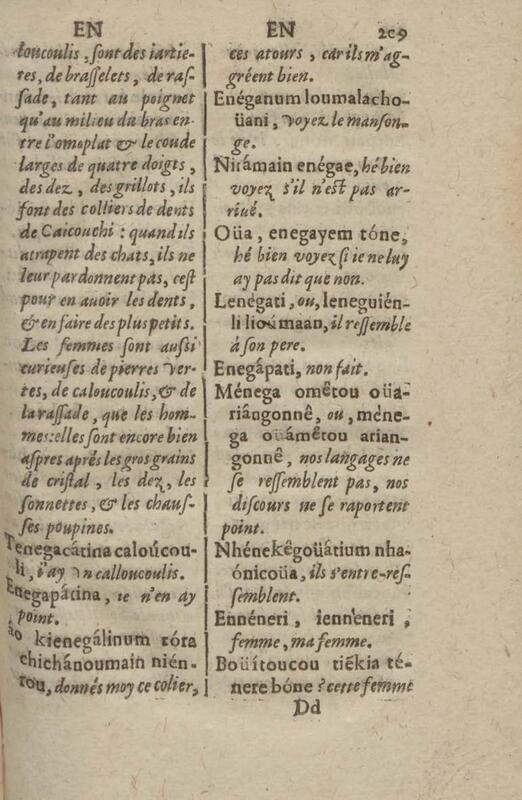 EN
EN
209
loucoulis, ſont des iartie-
res, de braſſelets, de raſ-
ſade, tant au poignet
qu'au milieu du bras en-
tre l'omoplat & le coude
larges de quatre doigts,
des dez, des grillots, ils
font des colliers de dents
de Caicouchi : quand ils
atrapent des chats, ils ne
leur pardonnent pas, ceſt
pour en auoir les dents,
& en faire des plus petits.
Les femmes ſont auſſi
curieuſes de pierres ver-
tes, de caloucoulis, & de
la raſſade, que les hom-
mes: elles ſont encore bien
aſpres aprés les gros grains
de criſtal, les dez, les
ſonnettes, & les chauſ-
ſes poupines.
Tenegacátina caloúcou-
li, i'ay vn calloucoulis.
Enegapátina, ie n'en ay
point.
áo kienegálinum tóra
chichánoumain nién-
rou, donnés moy ce colier,
ces atours, car ils m'ag-
gréent bien.
Enéganum loumalacho-
üani, voyez le manſon-
ge.
Nirámain enégae, hé bien
voyez s'il n'eſt pas ar-
riué.
Oüa, enegayem tóne,
hé bien voyez ſi ie ne luy
ay pas dit que non.
Lenégati, ou, leneguién-
li lioúmaan, il reſſemble
à ſon pere.
Enegápati, non fait.
Ménega omêtou oüa-
riângonnê, ou, méne-
ga oüámêtou arian-
gonnê, nos langages ne
ſe reſſemblent pas, nos
diſcours ne ſe raportent
point.
Nhénekêgoüátium nha-
ónicoüa, ils s'entre-reſ-
ſemblent.
Ennéneri, ienn'eneri,
femme, ma femme.
Boüítoucou tiēkia té-
nere bóne ? cette femme
Dd